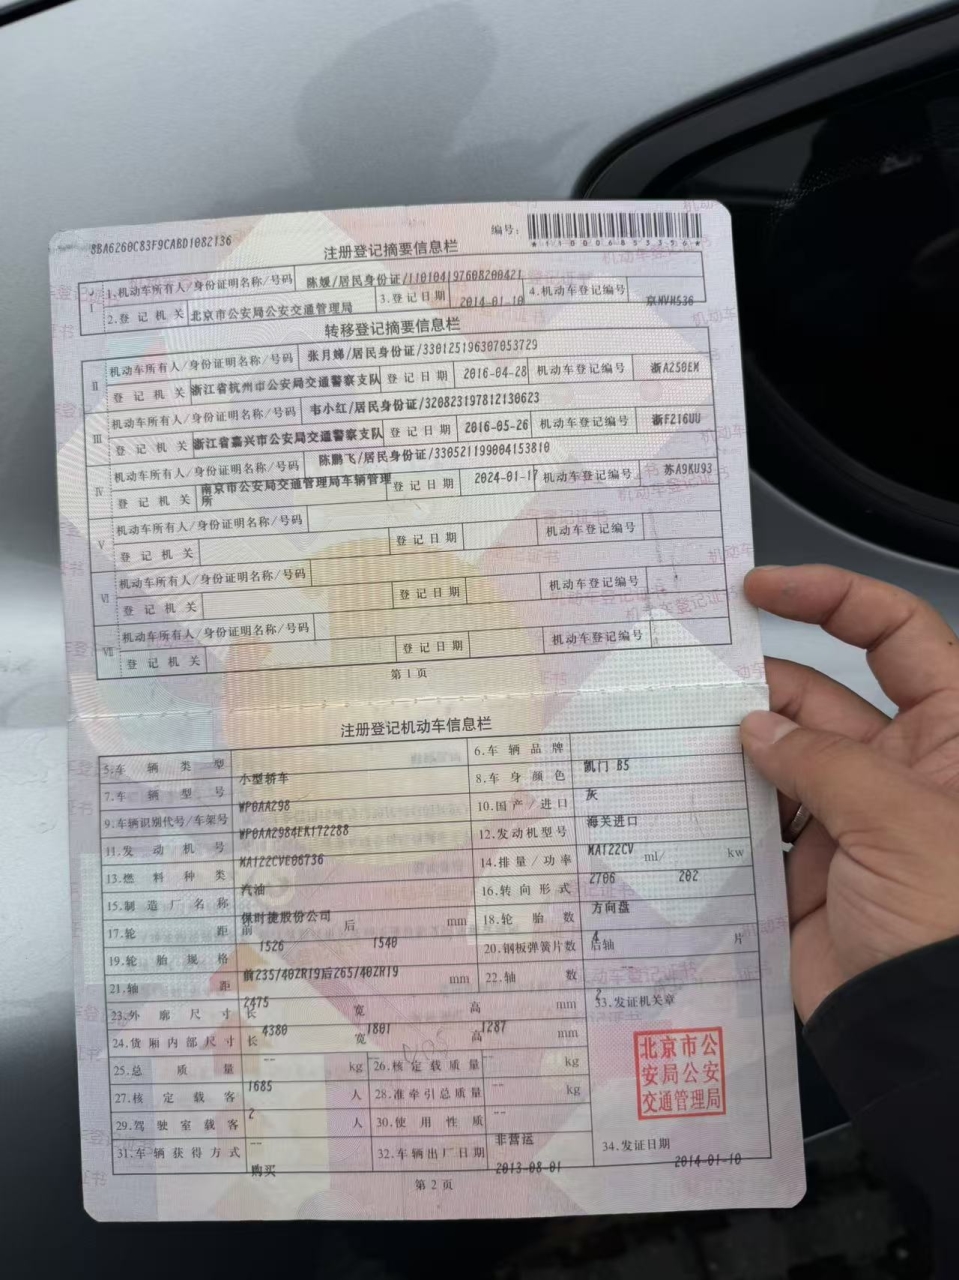 8BA6260C83F9CABD1082136
编号:
注册登记摘要信息栏
Ⅰ 1.机动车所有人/身份证明名称/号码 陈嫚/居民身份证/110104197608200421
2.登记机关 北京市公安局公安交通管理局 3.登记日期 2014-01-10 4.机动车登记编号 京NVH536
转移登记摘要信息栏
Ⅱ 机动车所有人/身份证明名称/号码 张月娣/居民身份证/330125196307053729
登记机关 浙江省杭州市公安局交通警察支队 登记日期 2016-04-28 机动车登记编号 浙A250EM
Ⅲ 机动车所有人/身份证明名称/号码 韦小红/居民身份证/320823197812130623
登记机关 浙江省嘉兴市公安局交通警察支队 登记日期 2016-05-26 机动车登记编号 浙F216UU
Ⅳ 机动车所有人/身份证明名称/号码 陈鹏飞/居民身份证/330521199004153810
登记机关 南京市公安局交通管理局车辆管理所 登记日期 2024-01-17 机动车登记编号 苏A9KU93
Ⅴ 机动车所有人/身份证明名称/号码
登记机关 登记日期 机动车登记编号
Ⅵ 机动车所有人/身份证明名称/号码
登记机关 登记日期 机动车登记编号
Ⅶ 机动车所有人/身份证明名称/号码
登记机关 登记日期 机动车登记编号
第1页
注册登记机动车信息栏
5.车辆类型 小型轿车 6.车辆品牌 凯门 B5
7.车辆型号 WP0AA298 8.车身颜色 灰
9.车辆识别代号/车架号 WP0AA2984EK172288 10.国产/进口 海关进口
11.发动机号 MA122CVE06736 12.发动机型号 MA122CV
13.燃料种类 汽油 14.排量/功率 2706 ml/ 202 kw
15.制造厂名称 保时捷股份公司 16.转向形式 方向盘
17.轮距 前 1526 后 1540 mm 18.轮胎数 4
19.轮胎规格 前235/40ZR19后265/40ZR19 20.钢板弹簧片数 后轴 片
21.轴距 2475 mm 22.轴数 2
23.外廓尺寸 长 4380 宽 1801 高 1287 mm 33.发证机关章
24.货厢内部尺寸 长 -- 宽 -- 高 -- mm
25.总质量 1685 kg 26.核定载质量 -- kg
27.核定载客 2 人 28.准牵引总质量 -- kg
29.驾驶室载客 -- 人 30.使用性质 非营运
31.车辆获得方式 购买 32.车辆出厂日期 2013-08-01 34.发证日期 2014-01-10
北京市公
安局公安
交通管理局
第2页